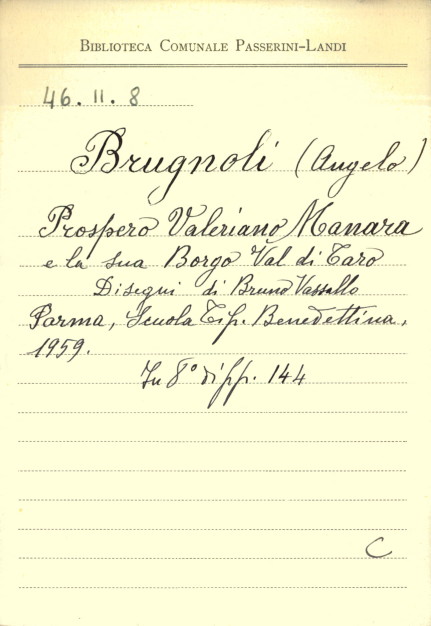 BIBLIOTECA COMUNALE PASSERINI-LANDI
46. II. 8
Brugnoli (Angelo)
Prospero Valeriano Manara
e la sua Borgo Val di Taro
Disegni di Bruno Vassallo
Parma, Scuola Tip. Benedettina,
1959.
In 8° di pp. 144
C